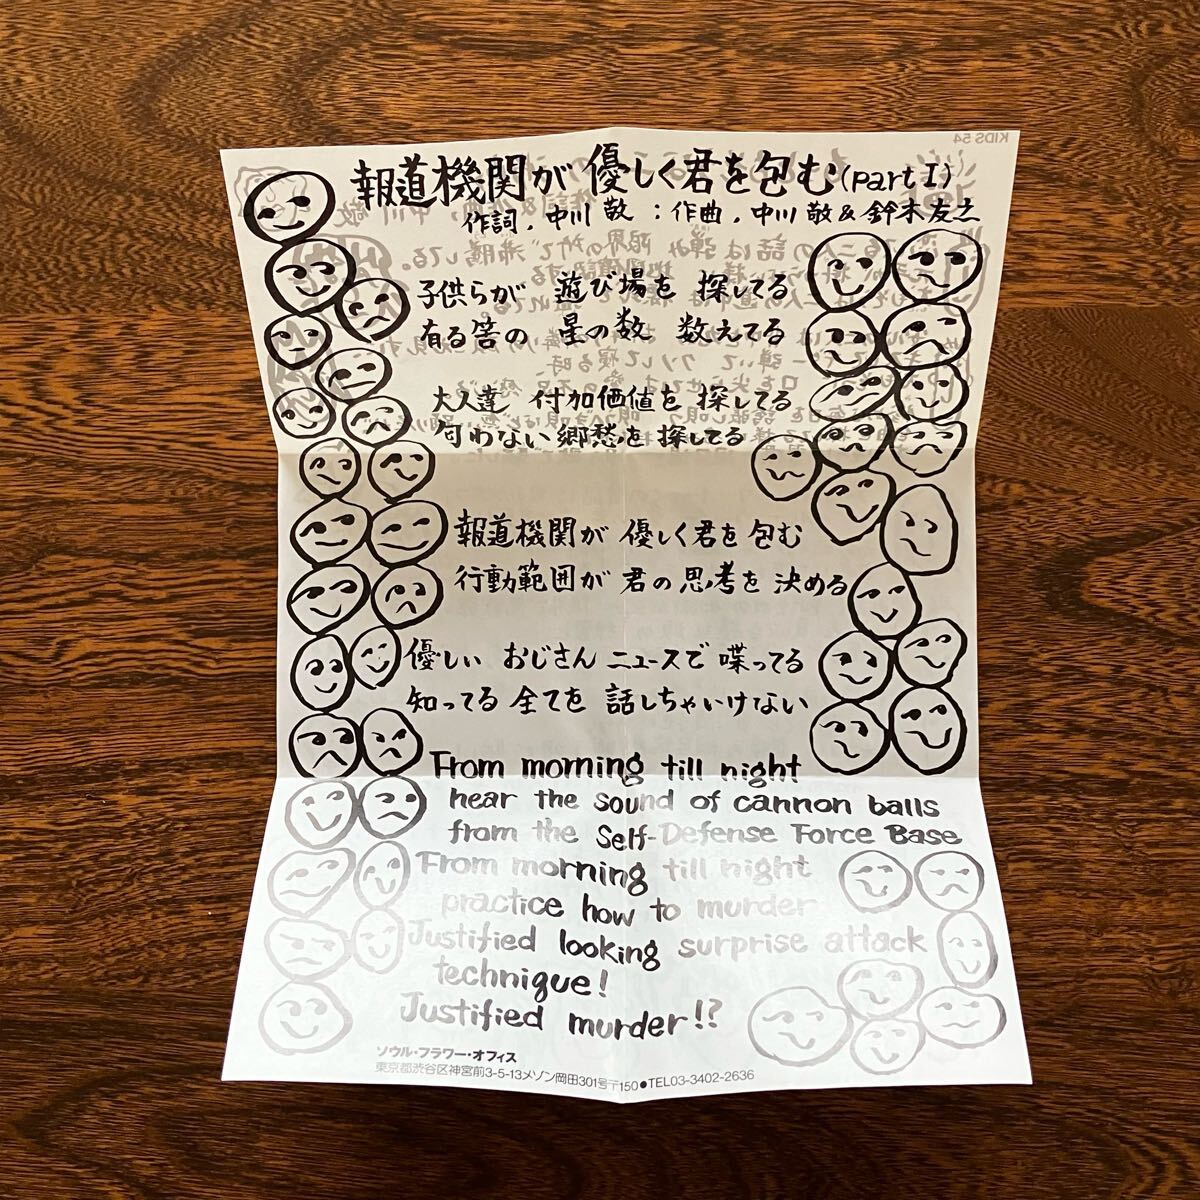 KIDS 54
報道機関が優しく君を包む(part I)
作詞.中川敬:作曲.中川敬&鈴木友之
子供らが 遊び場を 探してる
有る筈の 星の数 数えてる
大人達 付加価値を 探してる
匂わない郷愁を探してる
報道機関が 優しく君を包む
行動範囲が 君の思考を決める
優しい おじさん ニュースで 喋ってる
知ってる 全てを 話しちゃいけない
From morning till night
hear the sound of cannon balls
from the Self-Defense Force Base
From morning till night
practice how to murder
Justified looking surprise attack
technique!
Justified murder!?
ソウル・フラワー・オフィス
東京都渋谷区神宮前3-5-13メゾン岡田301号〒150●TEL03-3402-2636